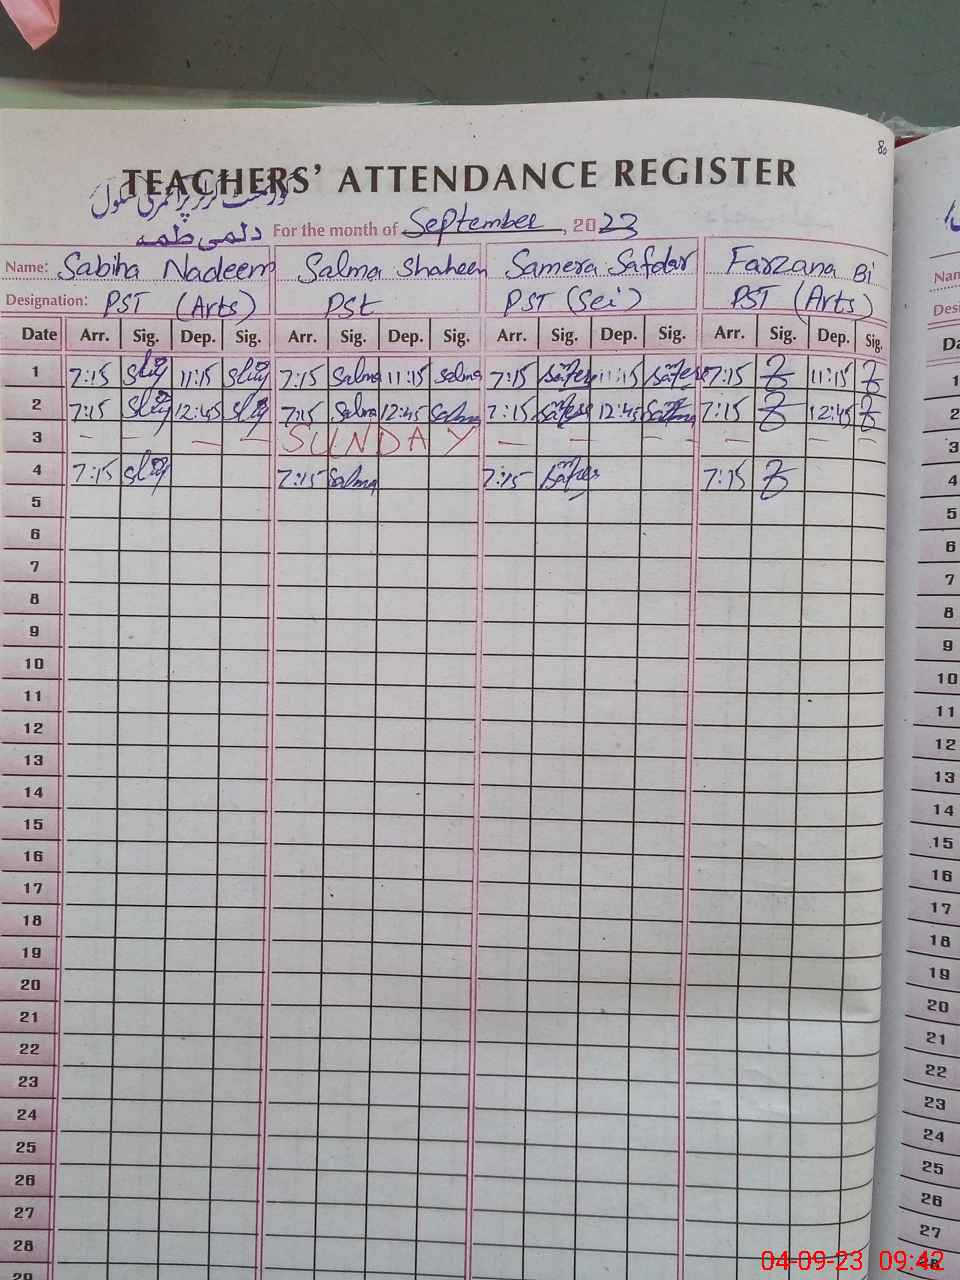 80
TEACHERS' ATTENDANCE REGISTER
گورنمنٹ گرلز پرائمری سکول
For the month of September, 2023
Name: Sabiha Nadeem Salma Shaheen Samera Safdar Farzana Bi
Designation: PST (Arts) PSt PST (Sci) PST (Arts)
Date Arr. Sig. Dep. Sig. Arr. Sig. Dep. Sig. Arr. Sig. Dep. Sig. Arr. Sig. Dep. Sig.
1 7:15 11:15 7:15 Salma 11:15 Salma 7:15 11:15 7:15 11:15
2 7:15 12:45 7:15 Salma 12:45 Salma 7:15 12:45 7:15 12:45
3 – – – – SUNDAY – – – – – – – –
4 7:15 7:15 Salma 7:15 7:15
5
6
7
8
9
10
11
12
13
14
15
16
17
18
19
20
21
22
23
24
25
26
27
28
29
Nam
Desi
Da
1
2
3
4
5
6
7
8
9
10
11
12
13
14
15
16
17
18
19
20
21
22
23
24
25
26
27
04-09-23 09:42